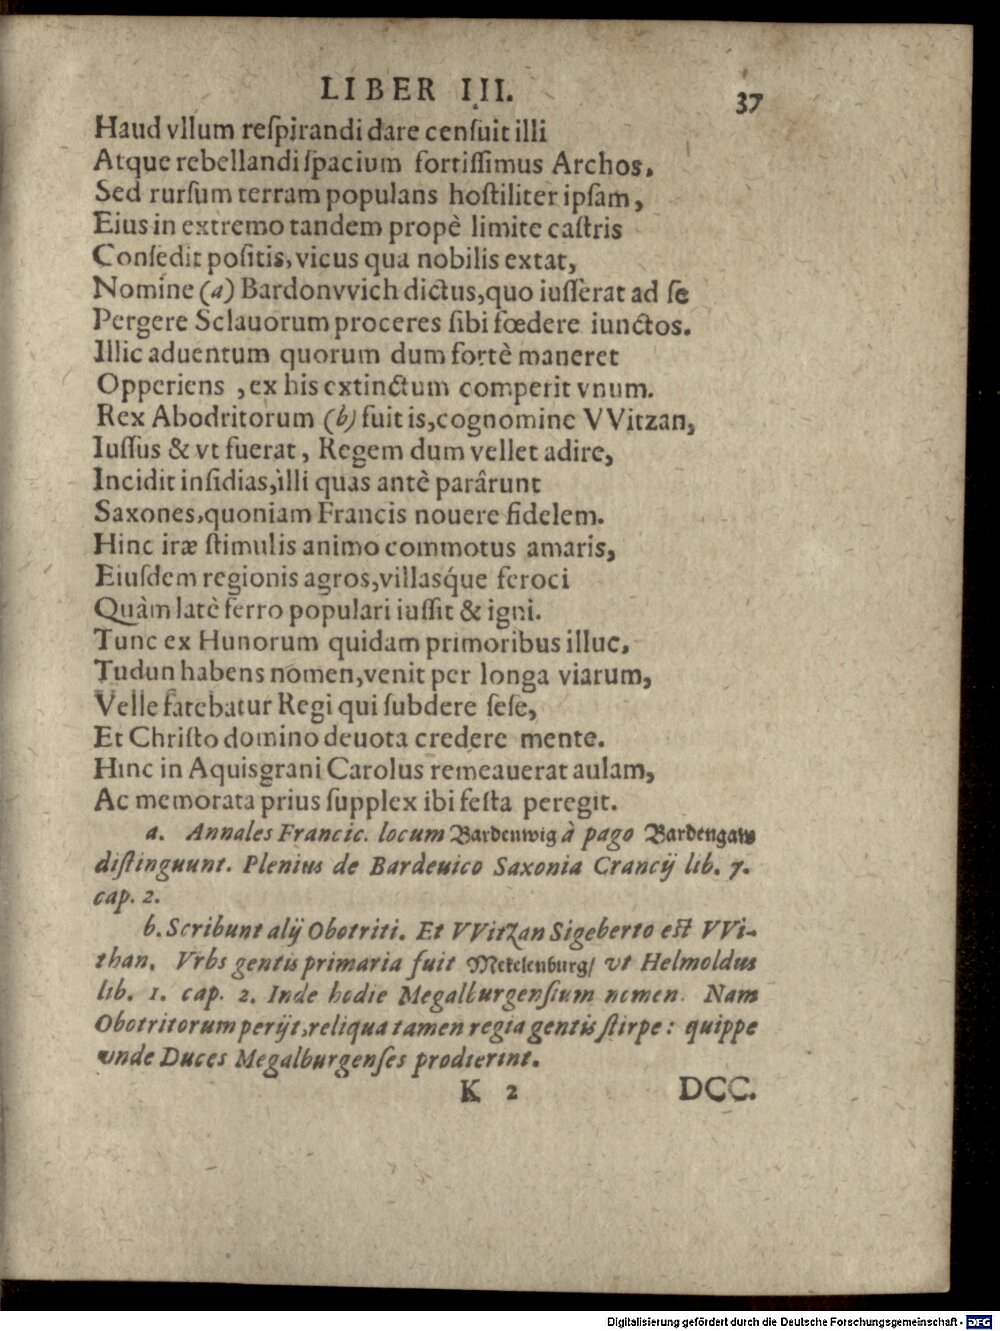 LIBER III.
37
Haud vllum reſpirandi dare cenſuit illi
Atque rebellandi ſpacium fortiſſimus Archos,
Sed rurſum terram populans hoſtiliter ipſam,
Eius in extremo tandem propè limite caſtris
Conſedit poſitis, vicus qua nobilis extat,
Nomine (a) Bardonvvich dictus, quo iuſſerat ad ſe
Pergere Sclauorum proceres ſibi fœdere iunctos.
Illic aduentum quorum dum fortè maneret
Opperiens , ex his extinctum comperit vnum.
Rex Abodritorum (b) fuit is, cognomine VVitzan,
Iuſſus & vt fuerat, Regem dum vellet adire,
Incidit inſidias, illi quas antè parârunt
Saxones, quoniam Francis nouere fidelem.
Hinc iræ ſtimulis animo commotus amaris,
Eiuſdem regionis agros, villasq́ue feroci
Quàm latè ferro populari iuſſit & igni.
Tunc ex Hunorum quidam primoribus illuc,
Tudun habens nomen, venit per longa viarum,
Velle fatebatur Regi qui ſubdere ſeſe,
Et Chriſto domino deuota credere mente.
Hinc in Aquisgrani Carolus remeauerat aulam,
Ac memorata prius ſupplex ibi feſta peregit.
a. Annales Francic. locum Bardenwig à pago Bardengaw
diſtinguunt. Plenius de Bardeuico Saxonia Crancij lib. 7.
cap. 2.
b. Scribunt alij Obotriti. Et VVitzan Sigeberto eſt VVi-
than. Vrbs gentis primaria fuit Mekelenburg/ vt Helmoldus
lib. 1. cap. 2. Inde hodie Megalburgenſium nomen. Nam
Obotritorum perijt, reliqua tamen regia gentis ſtirpe: quippe
vnde Duces Megalburgenſes prodierint.
K 2
DCC.
Digitalisierung gefördert durch die Deutsche Forschungsgemeinschaft - DFG